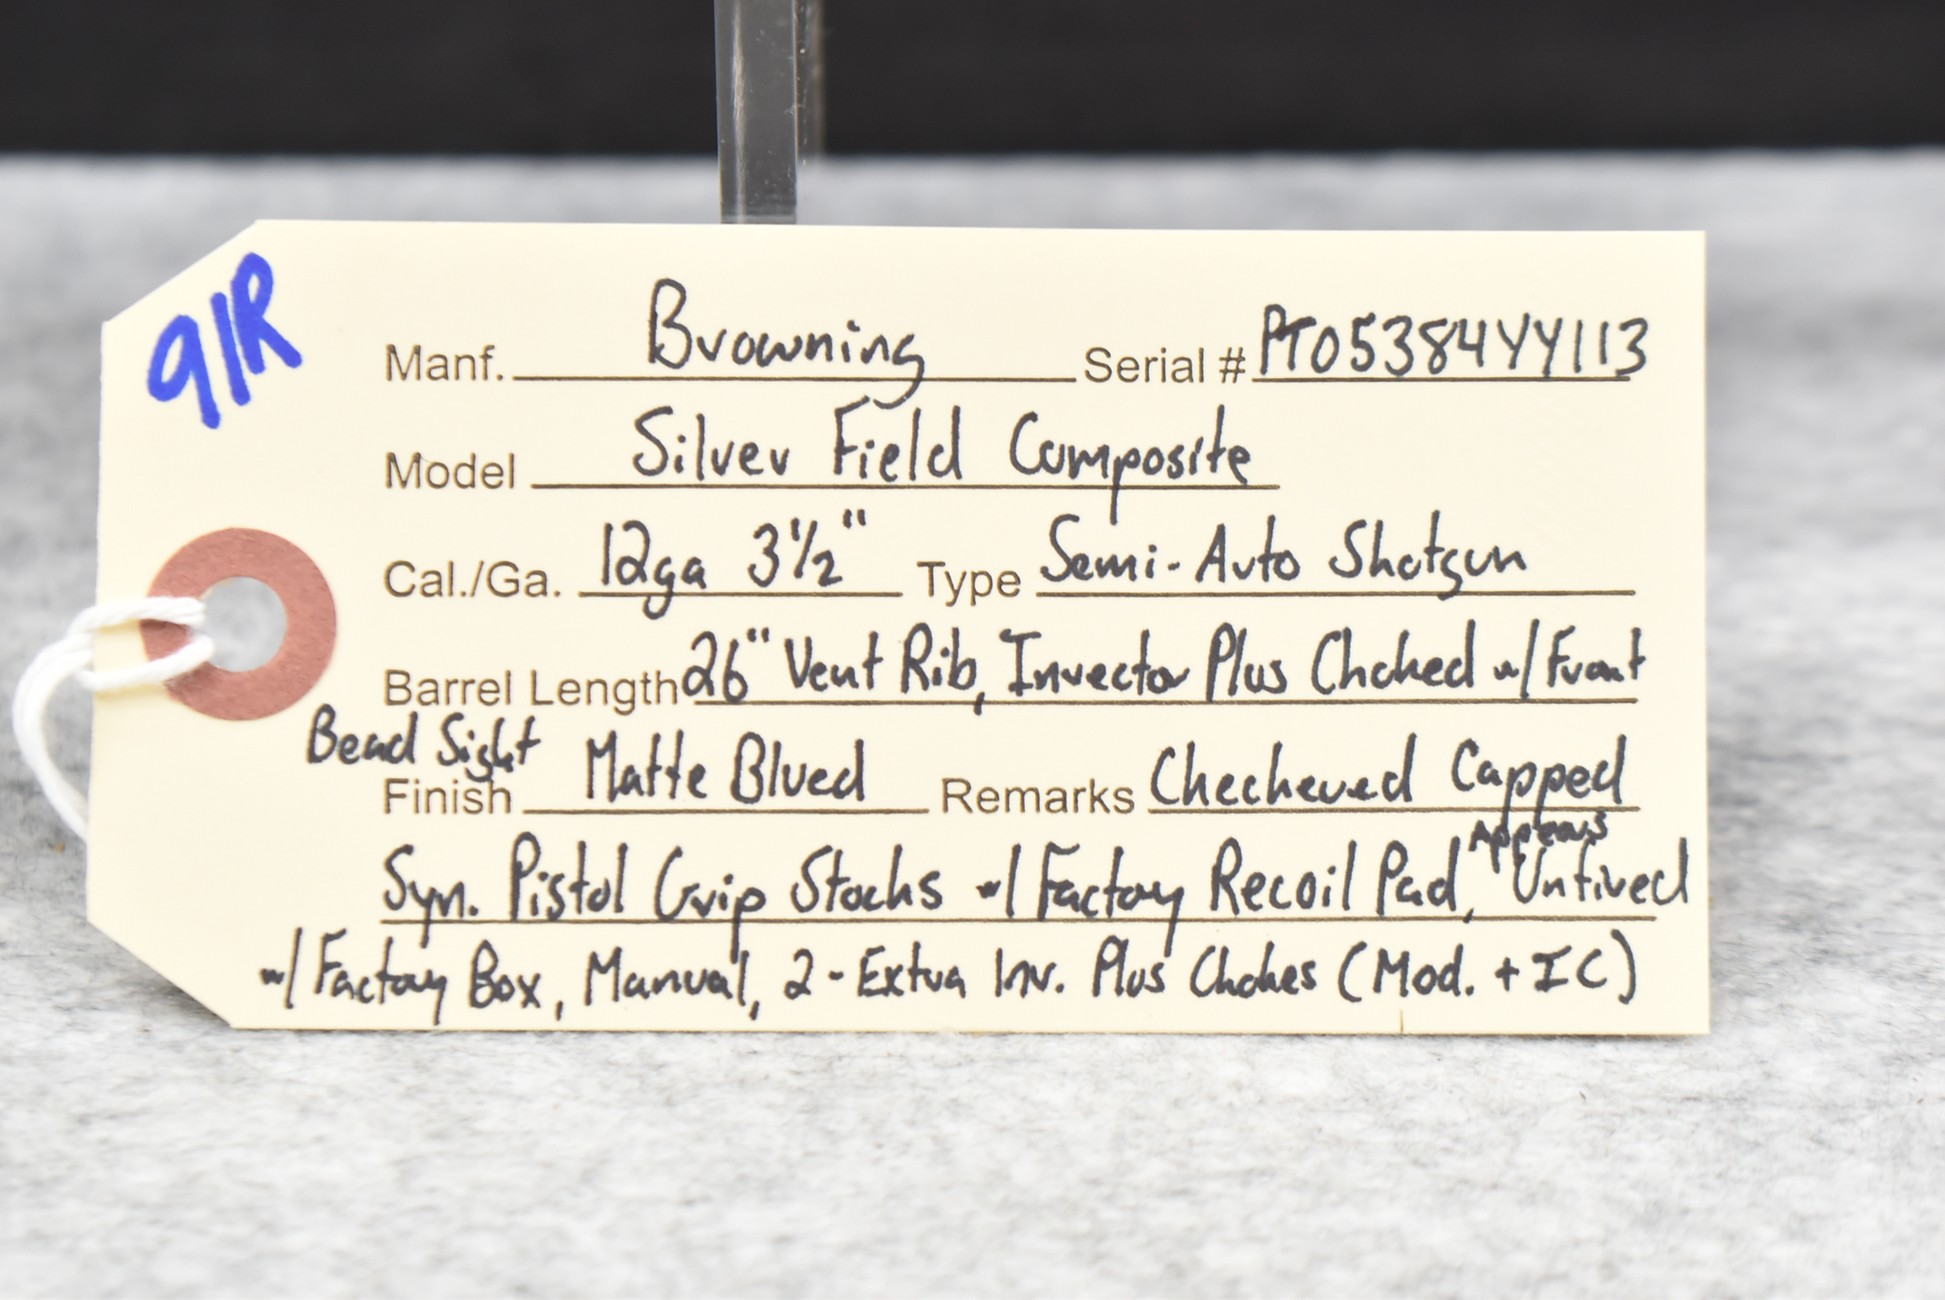 91R
Manf. Browning Serial # PT05384YY113
Model Silver Field Composite
Cal./Ga. 12ga 3½" Type Semi-Auto Shotgun
Barrel Length 26" Vent Rib, Invector Plus Choked w/ Front
Bead Sight
Finish Matte Blued Remarks Checkered Capped
Syn. Pistol Grip Stocks w/ Factory Recoil Pad, Appears Unfired
w/ Factory Box, Manual, 2-Extra Inv. Plus Chokes (Mod. + IC)